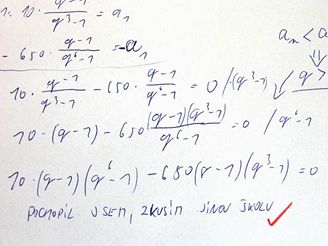 1. 10 · (q-1)/(q³-1) = a₁
- 650 · (q-1)/(q⁶-1) = -a₁
aₙ < a
⇓
q >
10 · (q-1)/(q³-1) - 650 · (q-1)/(q⁶-1) = 0 / · (q³-1)
10 · (q-1) - 650 (q-1)(q³-1)/(q⁶-1) = 0 / q⁶-1
10 · (q-1)(q⁶-1) - 650(q-1)(q³-1) = 0
POCHOPIL JSEM, ZKUSÍM JINOU ŠKOLU ✓